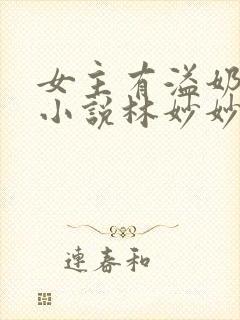 女主有溢奶
小説林妙妙
連春和